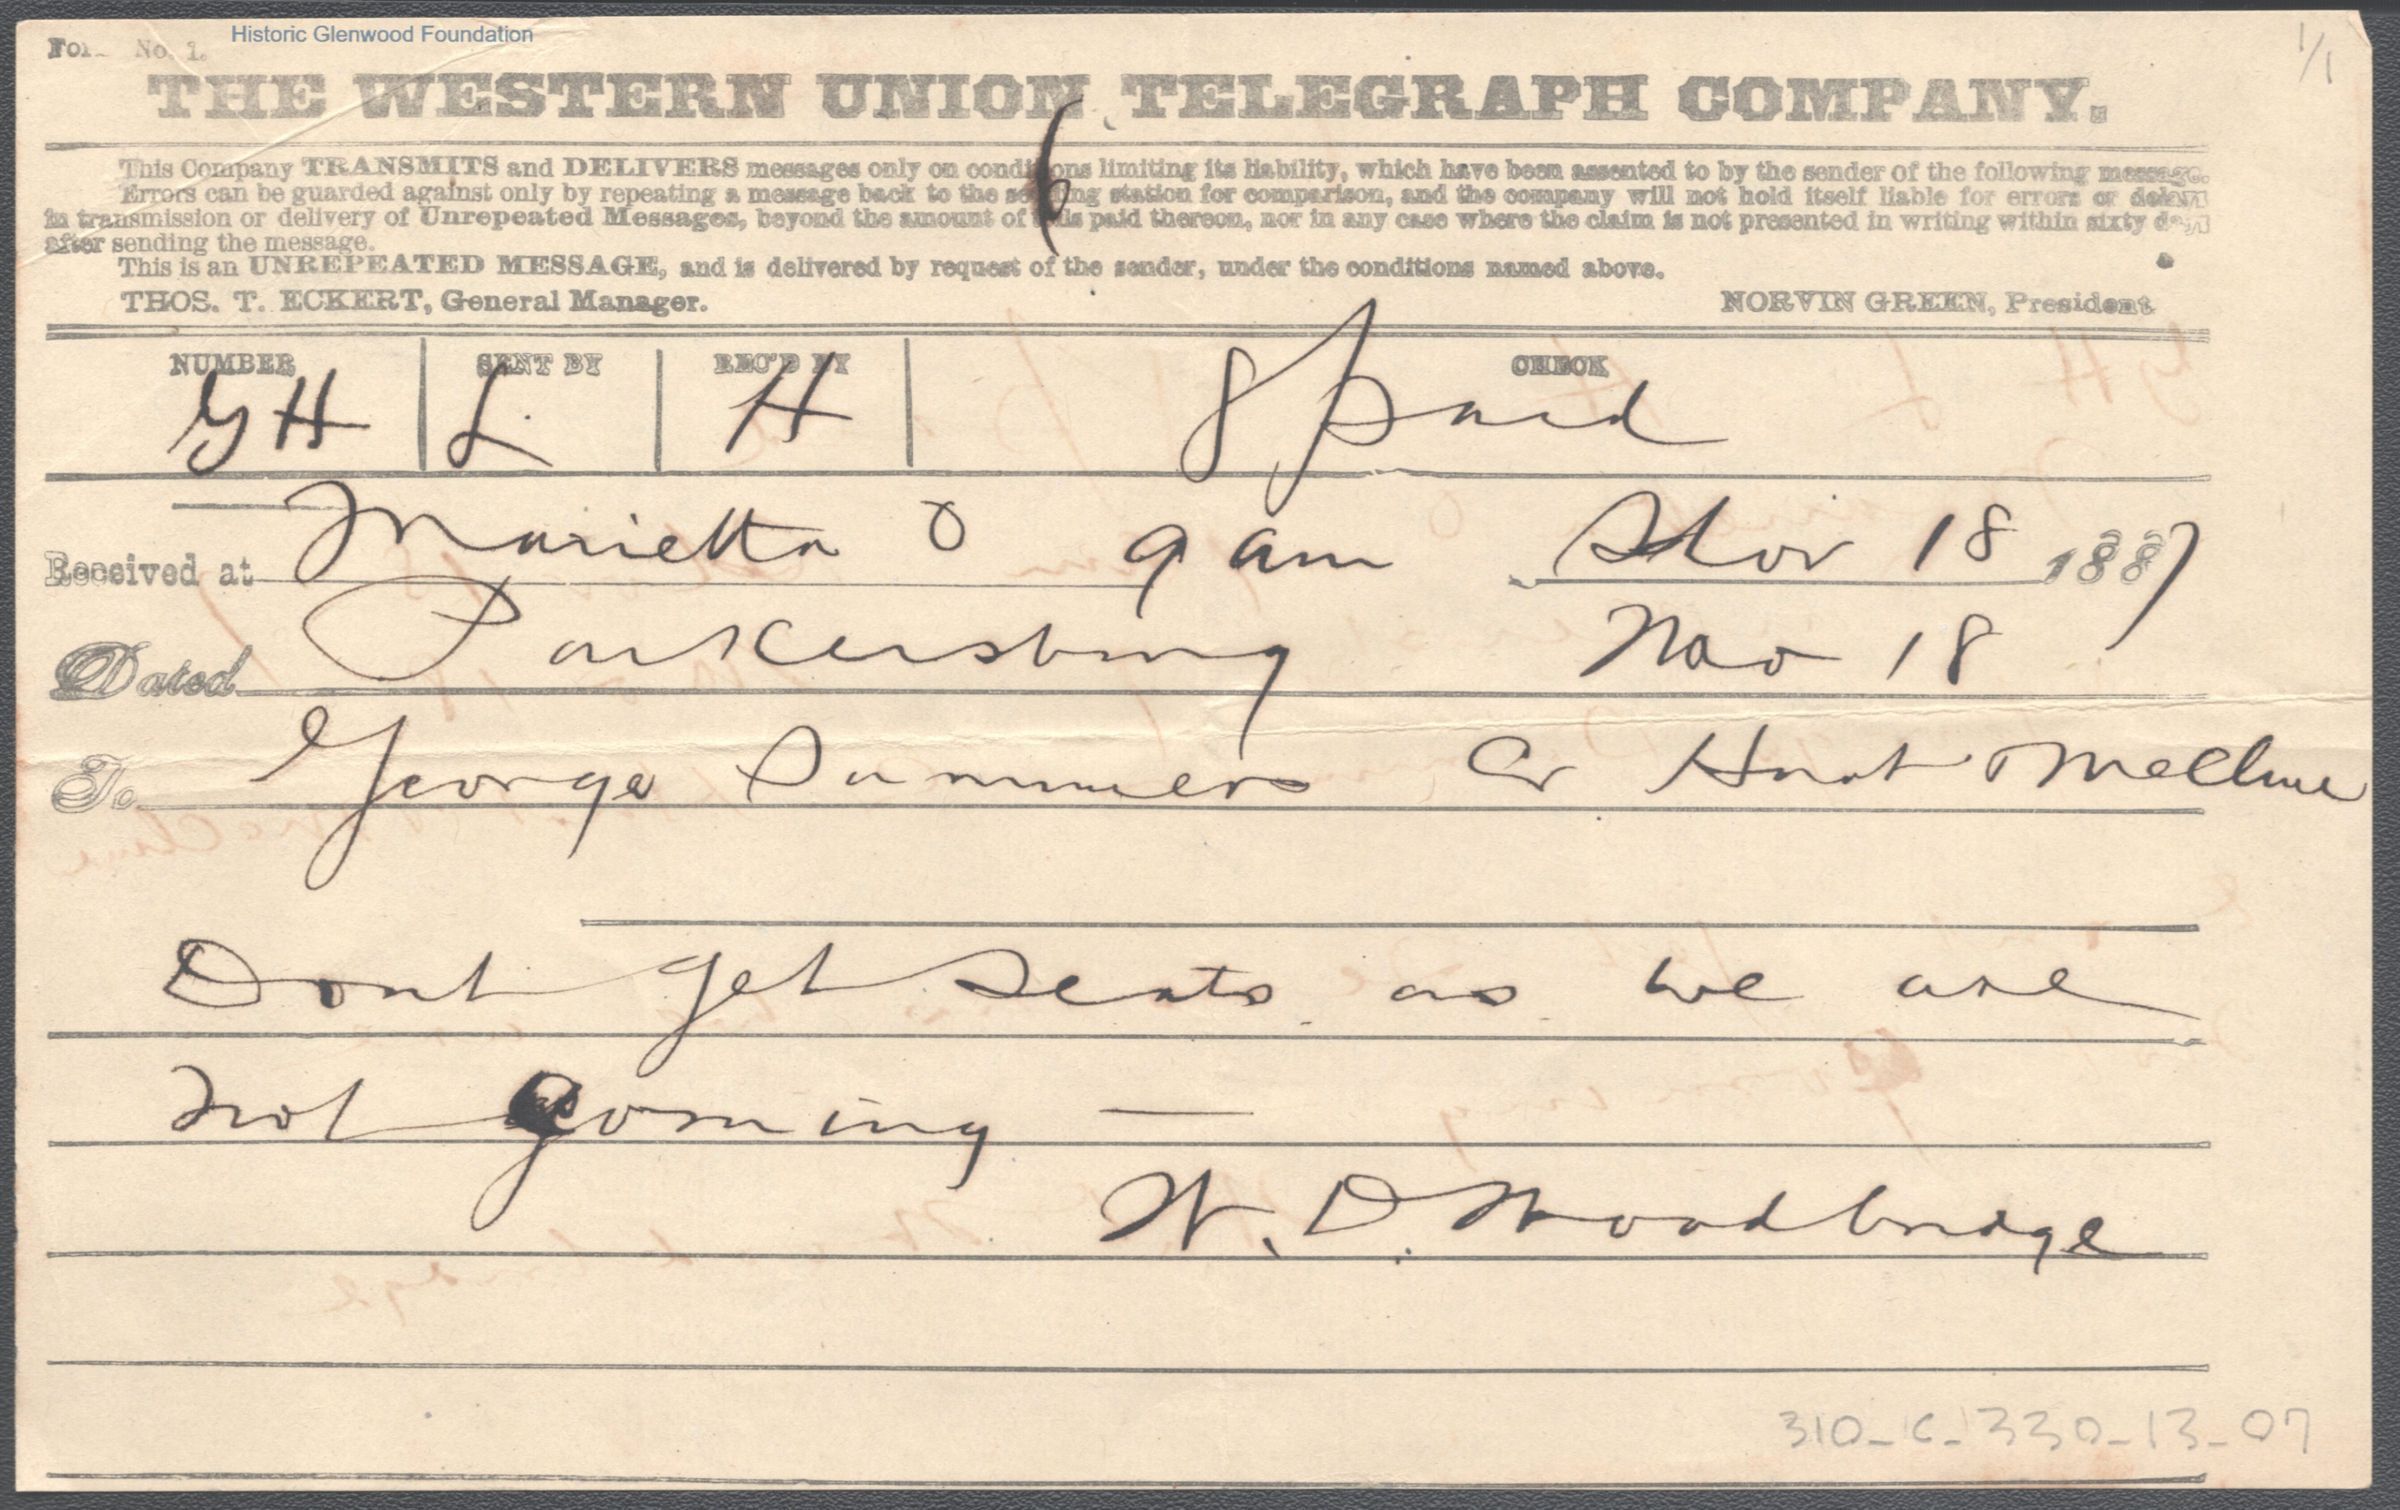 Historic Glenwood Foundation
1/1
Form No. 1.
THE WESTERN UNION TELEGRAPH COMPANY.
This Company TRANSMITS and DELIVERS messages only on conditions limiting its liability, which have been assented to by the sender of the following message.
Errors can be guarded against only by repeating a message back to the sending station for comparison, and the company will not hold itself liable for errors or delays
in transmission or delivery of Unrepeated Messages, beyond the amount of tolls paid thereon, nor in any case where the claim is not presented in writing within sixty days
after sending the message.
This is an UNREPEATED MESSAGE, and is delivered by request of the sender, under the conditions named above.
THOS. T. ECKERT, General Manager. NORVIN GREEN, President
NUMBER SENT BY REC'D BY CHECK
GH L H 8 paid
Received at Marietta O 9 am Nov 18 1887
Dated Parkersburg Nov 18
To George Summers Cr Hunt
Dont get seats as we are
not Coming —
W. D. Woodbridge
310-C-330-13-07